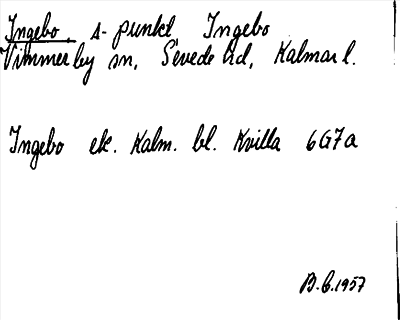 Ingebo s-punkt Ingebo
Vimmerby sn, Sevede hd, Kalmar l.
Ingebo ek. Kalm. bl. Kvilla 6G7a
B.E.1957